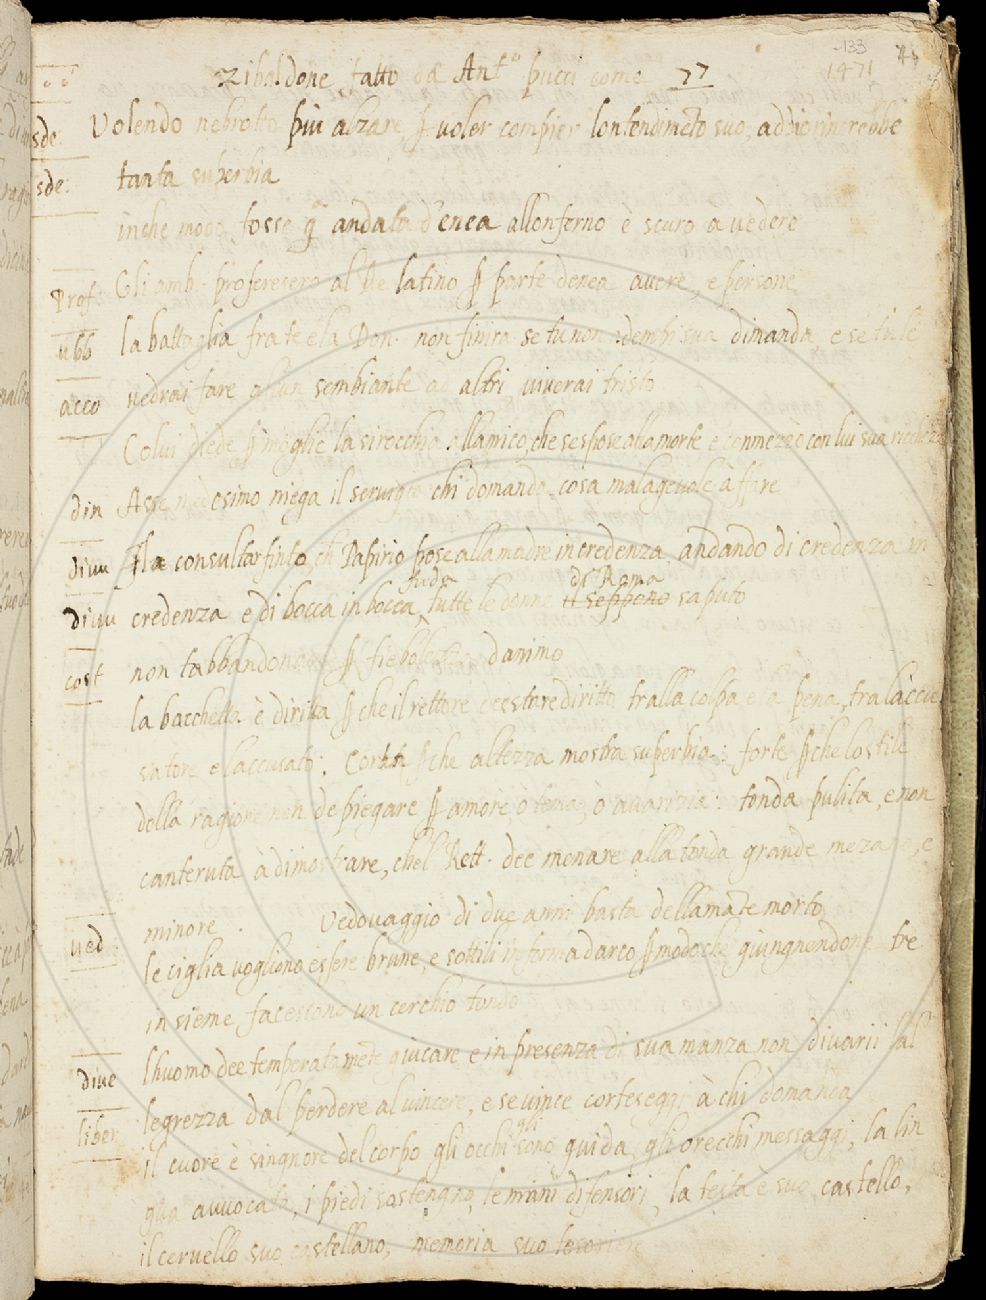 133
1471
Zibaldone fatto da Ant.o pucci come 77
Volendo nebrotto più alzare, ꝑ voler compier lontendimeto suo, addio rincrebbe
tanta superbia
in che modo fosse q andata d'enea allonferno è scuro a vedere
Gli amb. proferesero al Re latino ꝑ parte denea avere, e persone
la battaglia fra te e la Don. non finira se tu non adempi sua dimanda, e se tu le
vedrai fare alcun sembiante ad altri viverai tristo
Colui diede ꝑ moglie la sirocchia allamico, che sespose alla morte e
Asse medesimo niega il servigio chi domanda cosa malagevole à fare
consultar finto, ch Papirio pose alla madre in credenza, andando di credenza in
credenza e di bocca in bocca, tutte le donne di Roma il seppono saputo
non tabbandonare ꝑ fiebolezza danimo
la bacchetta è diritta ꝑ che il rettore dee stare diritto tralla colpa e la pena, fra laccu
satore e laccusato: ꝑ che altezza mostra superbia: forte ꝑ che lo stile
della ragione non de piegare ꝑ amore, ò tema, ò avarizia: tonda pulita, e non
canteruta à dimostrare, chel Rett. dee menare alla tonda grande mezano, e
minore. Vedovaggio di due anni basta dellamate morto
le ciglia vogliono essere brune, e sottili in forma darco ꝑ modo che giungnendone tre
insieme facessono un cerchio tondo
lhuomo dee temperatamete giucare e in presenza di sua manza non divarii lal
legrezza dal perdere al vincere, e se vince corteseggi à chi domanda
il cuore è singnore del corpo gli occhi gli sono guida, gli orecchi messaggi, la lin
gua avvocata, i piedi sostengno, le mani difensori, la testa è suo castello,
il cervello suo castellano, memoria suo tesoriere
sde:
sde:
Prof:
ubb
acco
din
divu
divu
cost
ved
dive
liber